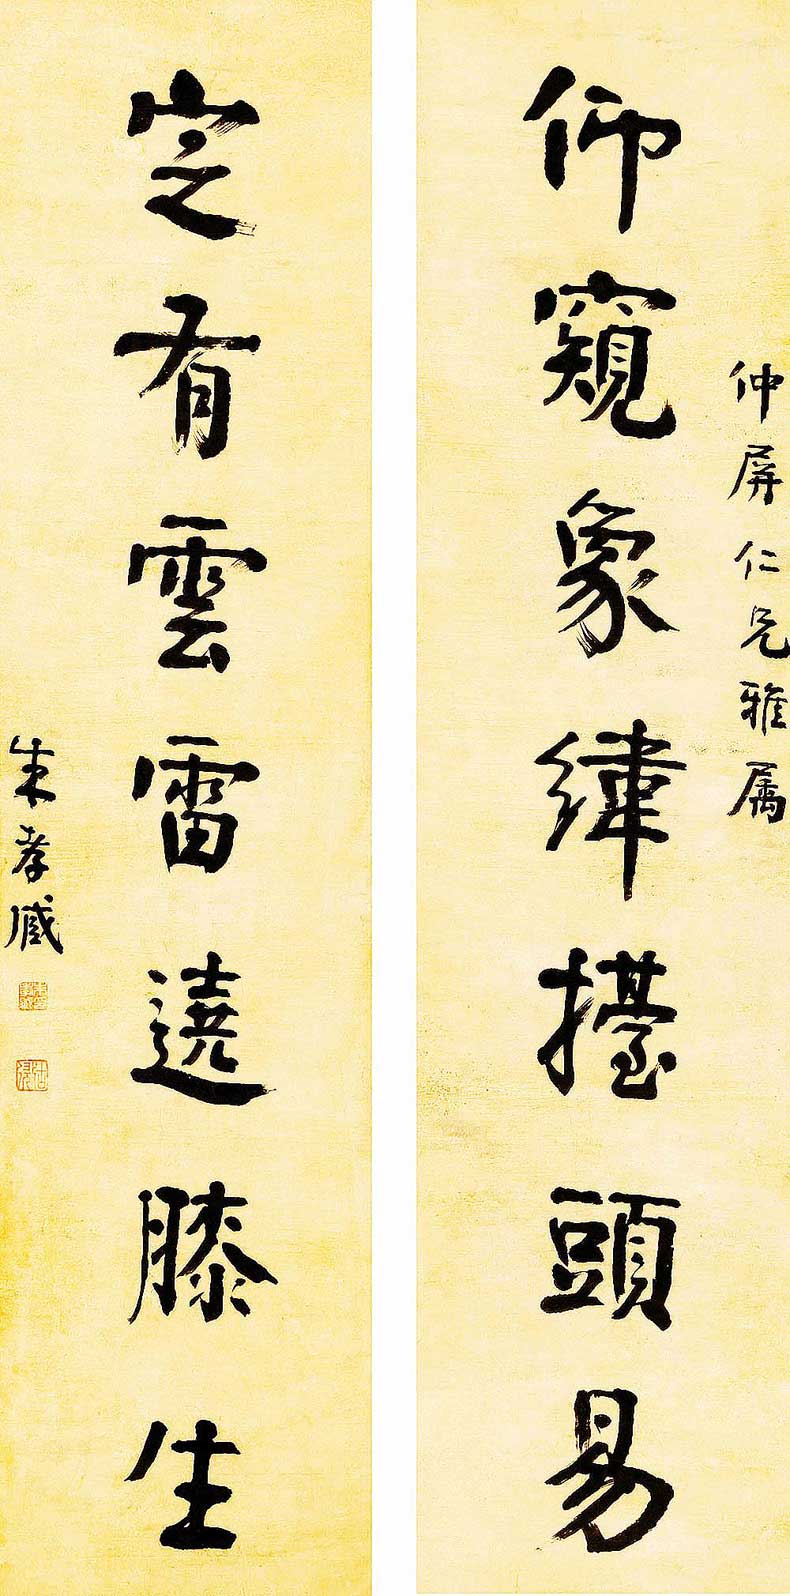 仲屏仁兄雅属
仰窺象緯擡頭易
定有雲雷遶膝生
朱孝臧